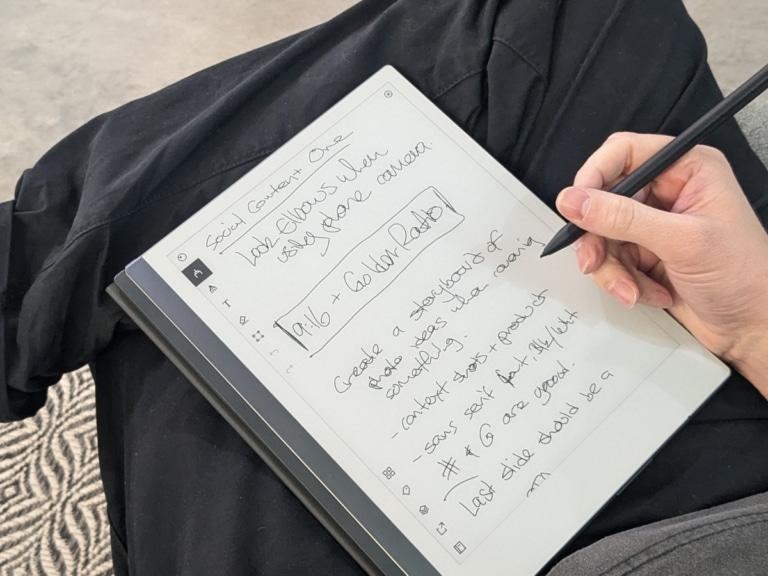 Social Content One
Lock Elbows when
using phone camera
9:16 + Golden Ratio
Create a storyboard of
photo ideas when
something.
- context shots + product
- sans serif font, Blk/Wht
# + @ are good.
Last slide should be a
T